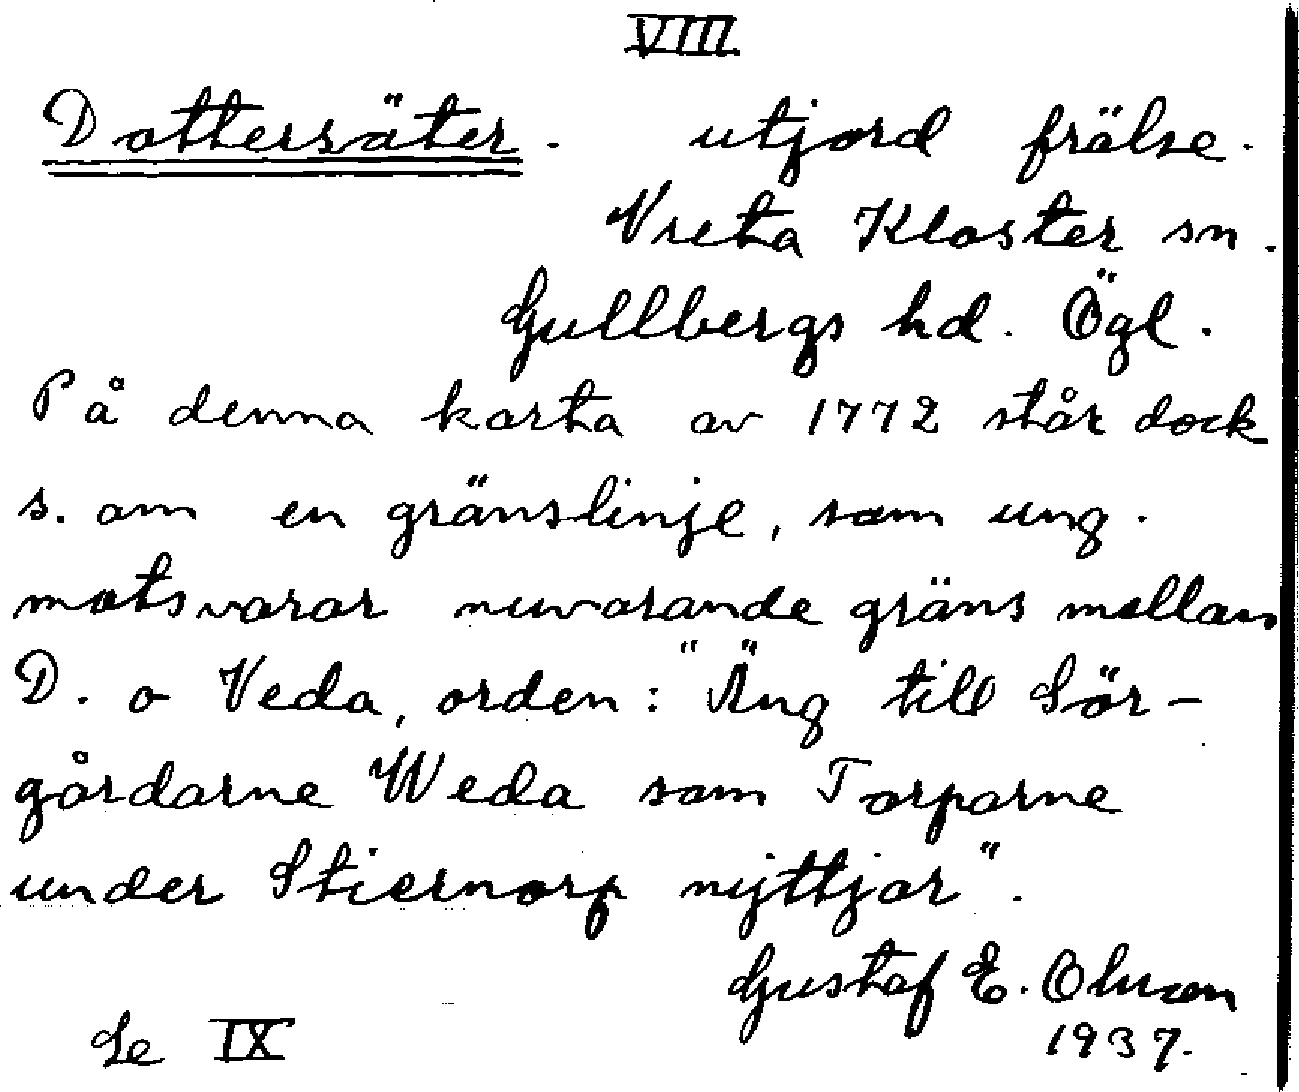 VIII
Dottersäter. utjord frälse.
Vreta Kloster sn.
Gullbergs hd. Ögl.
På denna karta av 1772 står dock
s. om en gränslinje, som ung.
motsvarar nuvarande gräns mellan
D. o Veda, orden: "Äng till Sör-
gårdarne Weda som Torparne
under Stiernorp nyttjar".
Gustaf E. Olsson
Se IX 1937.